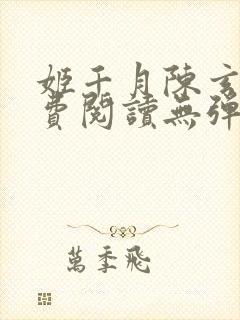 姬千月陳玄
費閱讀無彈
萬季飛